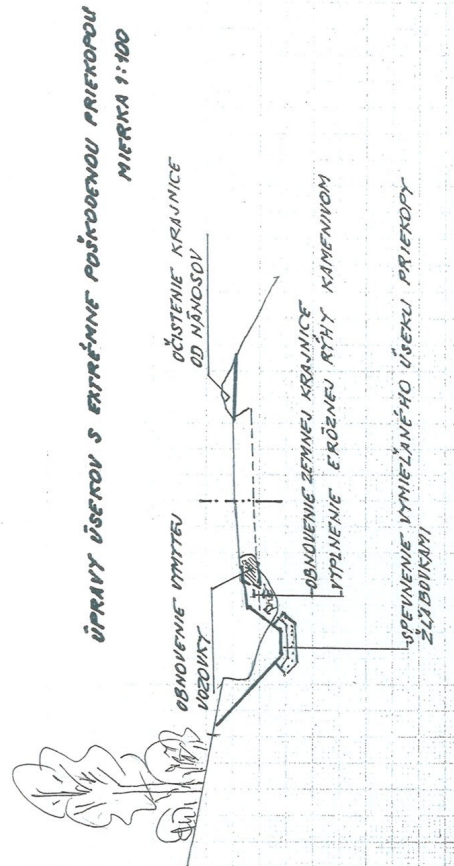 ÚPRAVY ÚSEKOV S EXTRÉMNE POŠKODENOU PRIEKOPOU
MIERKA 1:100
OČISTENIE KRAJNICE
OD NÁNOSOV
OBNOVENIE VYMYTEJ
VOZOVKY
OBNOVENIE ZEMNEJ KRAJNICE
VYPLNENIE ERÓZNEJ RÝHY KAMENIVOM
SPEVNENIE VYMIEĽANÉHO ÚSEKU PRIEKOPY
ŽĽABOVKAMI